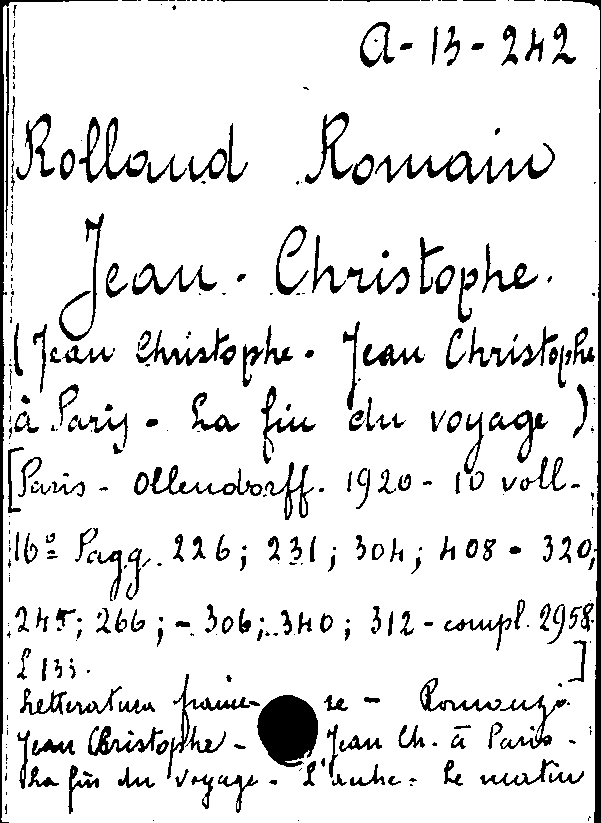 A-13-242
Rolland Romain
Jean-Christophe.
(Jean Christophe - Jean Christophe
à Paris - La fin du voyage)
[Paris - Ollendorff. 1920 - 10 voll-
16º Pagg. 226; 231; 304; 408 - 320;
245; 266; - 306; 340; 312 - compl. 2958
L 133. ]
Letteratura france-se - Romanzi
Jean Christophe - Jean Ch. à Paris -
La fin du voyage - L'aube - Le matin